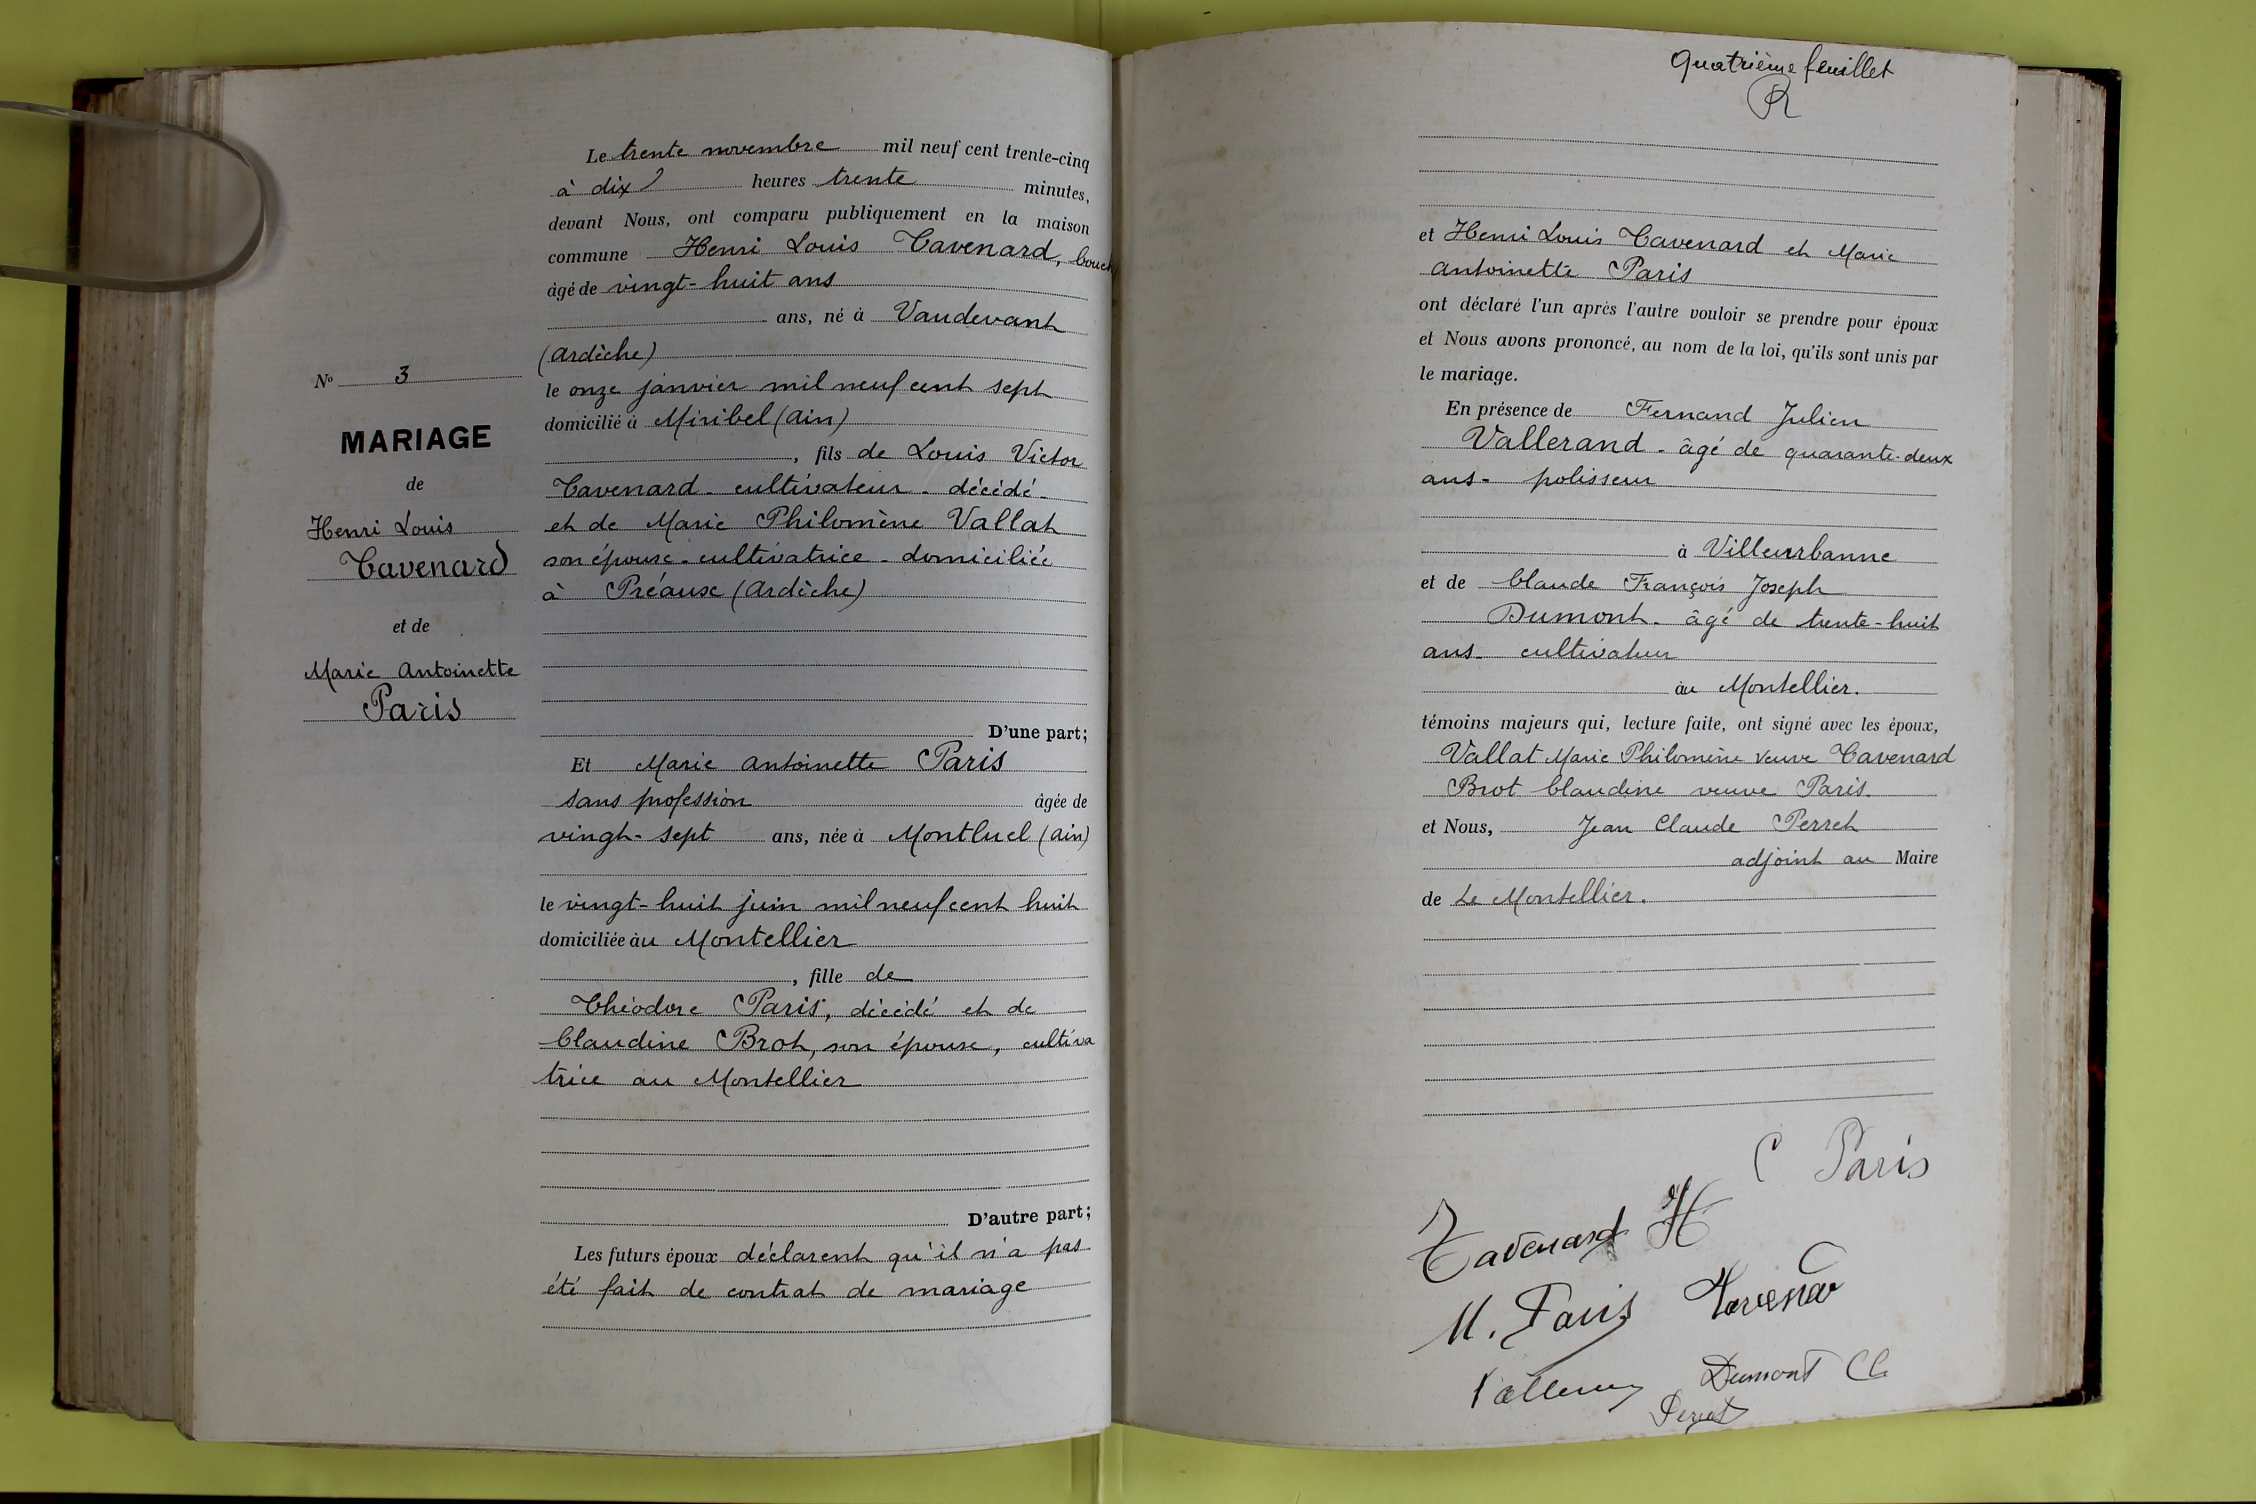 Le trente novembre mil neuf cent trente-cinq
à dix heures trente minutes,
devant Nous, ont comparu publiquement en la maison
commune Henri Louis Tavenard, bouch
âgé de vingt-huit ans
ans, né à Vaudevant
(Ardèche)
le onze janvier mil neuf cent sept
domicilié à Miribel (Ain)
, fils de Louis Victor
Tavenard - cultivateur - décédé -
et de Marie Philomène Vallat
son épouse - cultivatrice - domiciliée
à Préaux (Ardèche)
D'une part;
Et Marie Antoinette Paris
sans profession âgée de
vingt-sept ans, née à Montluel (Ain)
le vingt-huit juin mil neuf cent huit
domiciliée au Montellier
, fille de
Théodore Paris, décédé et de
Claudine Brot, son épouse, cultiva
trice au Montellier
D'autre part;
Les futurs époux déclarent qu'il n'a pas
été fait de contrat de mariage
No 3
MARIAGE
de
Henri Louis
Tavenard
et de
Marie Antoinette
Paris
Quatrième feuillet
et Henri Louis Tavenard et Marie
Antoinette Paris
ont déclaré l'un après l'autre vouloir se prendre pour époux
et Nous avons prononcé, au nom de la loi, qu'ils sont unis par
le mariage.
En présence de Fernand Julien
Vallerand - âgé de quarante-deux
ans - polisseur
à Villeurbanne
et de Claude François Joseph
Dumont - âgé de trente-huit
ans - cultivateur
au Montellier.
témoins majeurs qui, lecture faite, ont signé avec les époux,
Vallat Marie Philomène veuve Tavenard
Brot Claudine veuve Paris.
et Nous, Jean Claude Perret
adjoint au Maire
de Le Montellier.
C Paris
Tavenard H
M. Paris
Dumont Cl
Perret